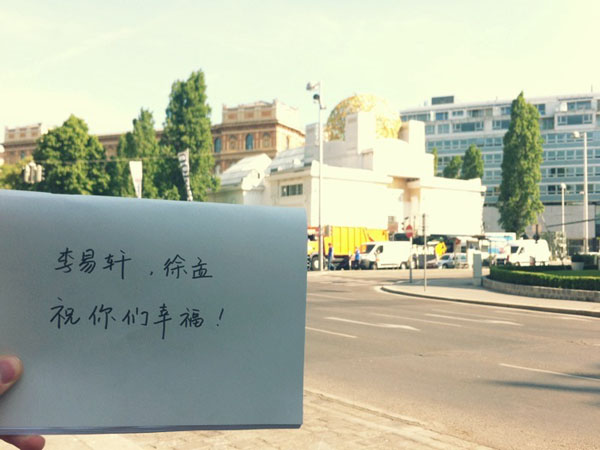 李易轩，徐孟
祝你们幸福！